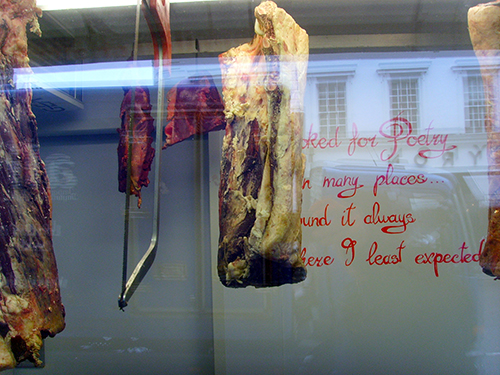 oked for Poetry
n many places...
und it always
here I least expected